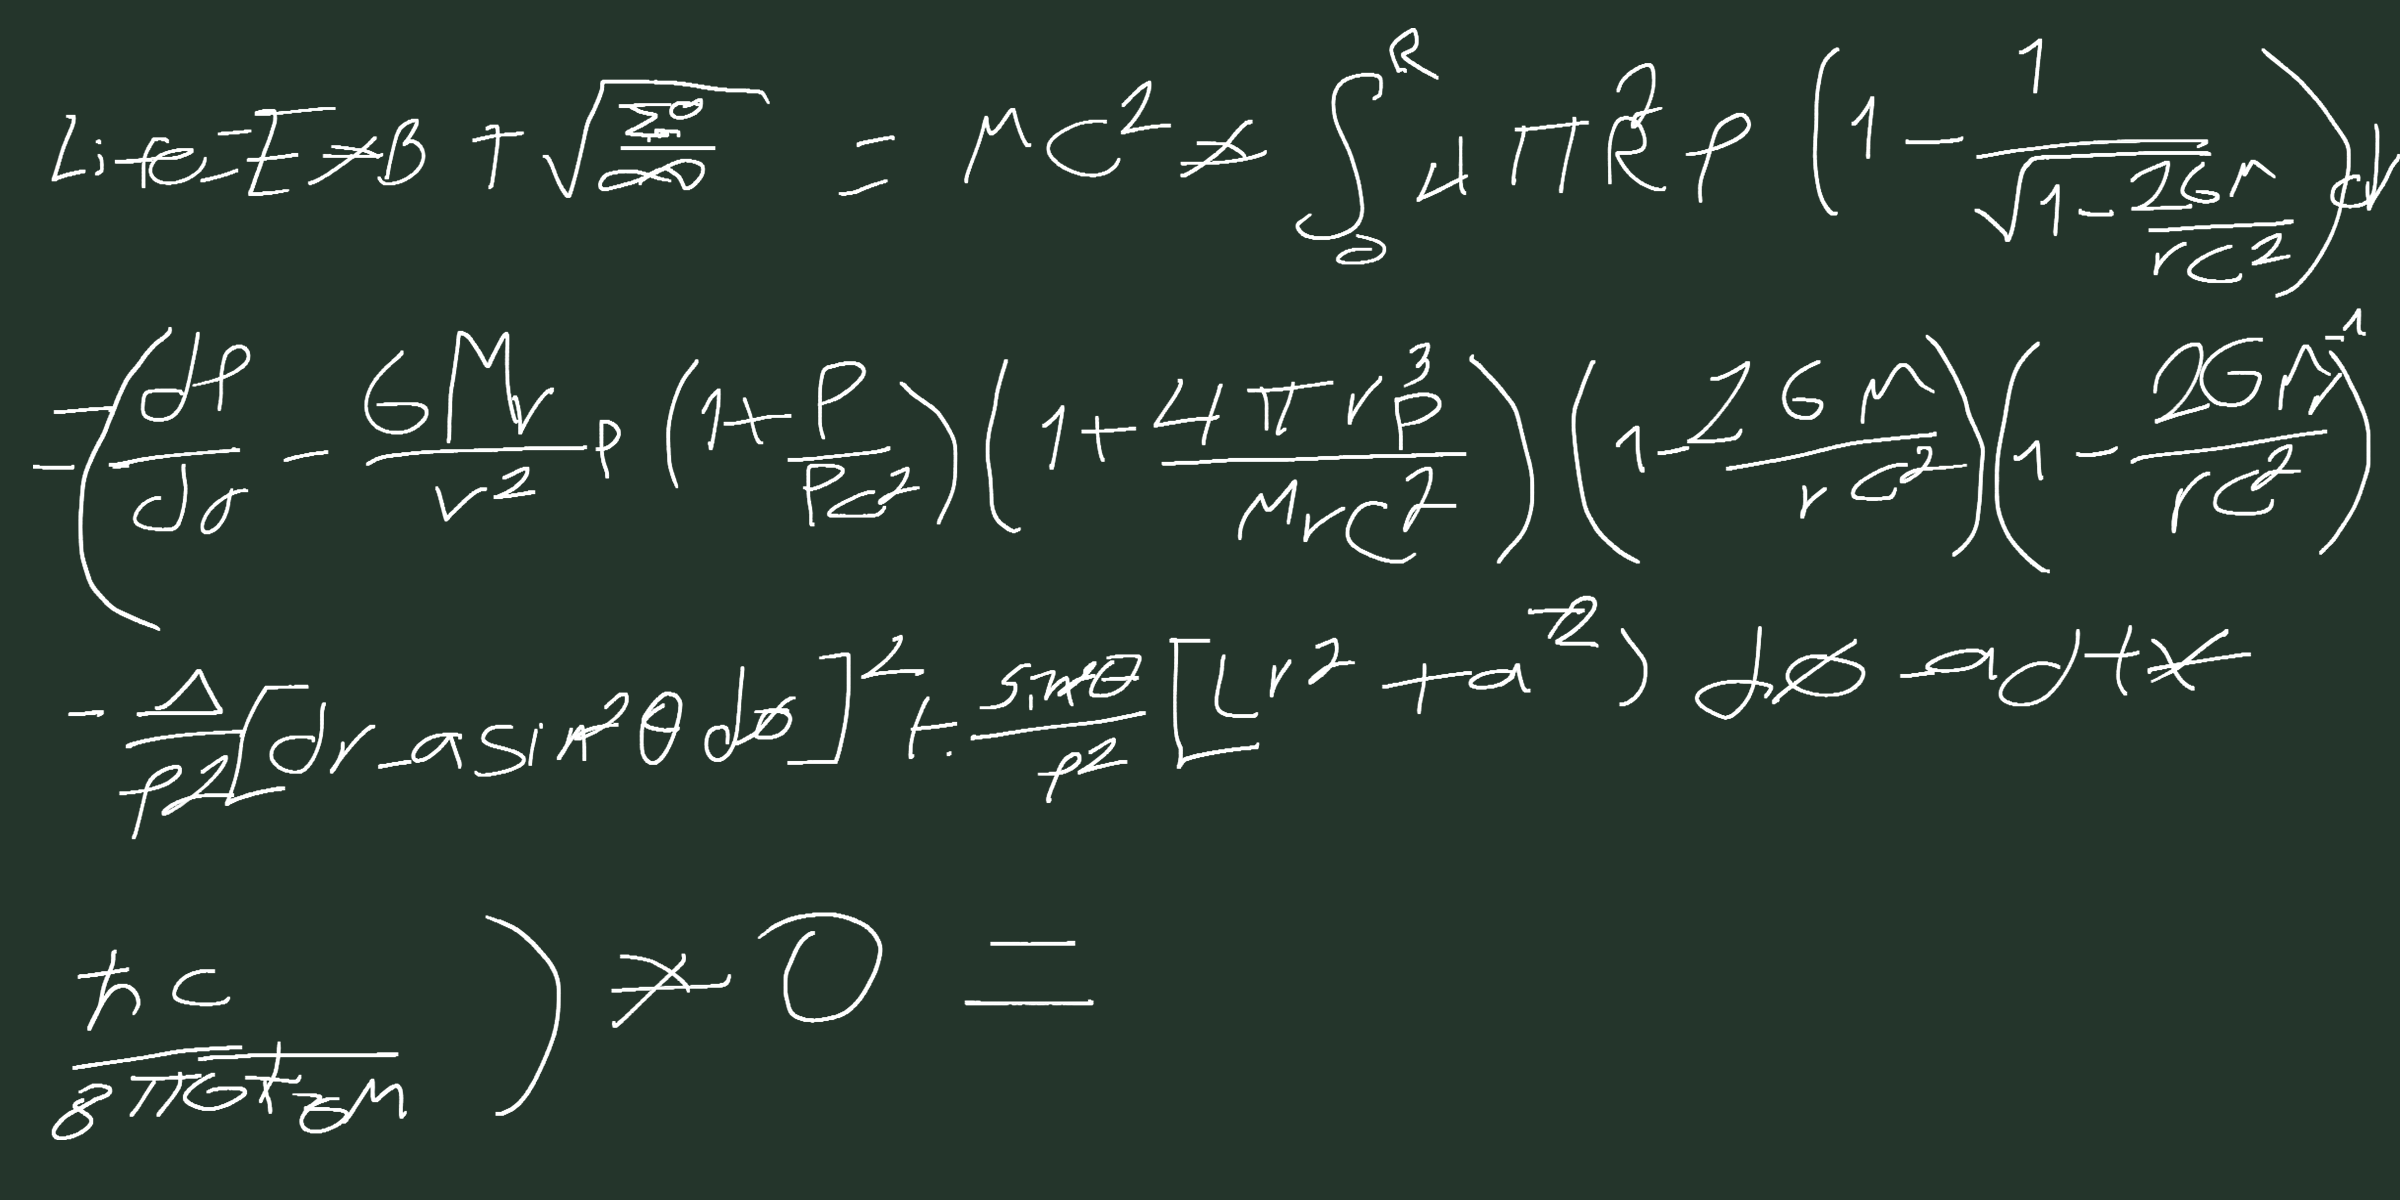 Life = E * B + √(Σ0/∞) = MC² * ∫₀ᴿ 4πR²ρ (1 - 1/√(1 - 2GM/rc²)) d
= (dP/dr - GMr/r² ρ (1 + P/Pc²) (1 + 4πr³P/Mrc²) (1 - 2GM/rc²) (1 - 2GM/rc²)⁻¹
- Δ/ρ² [dr - a sin²θ dø]² + sin²θ/ρ² [(r² + a²) dø - adt *
ħc/8πG M) * 0 =